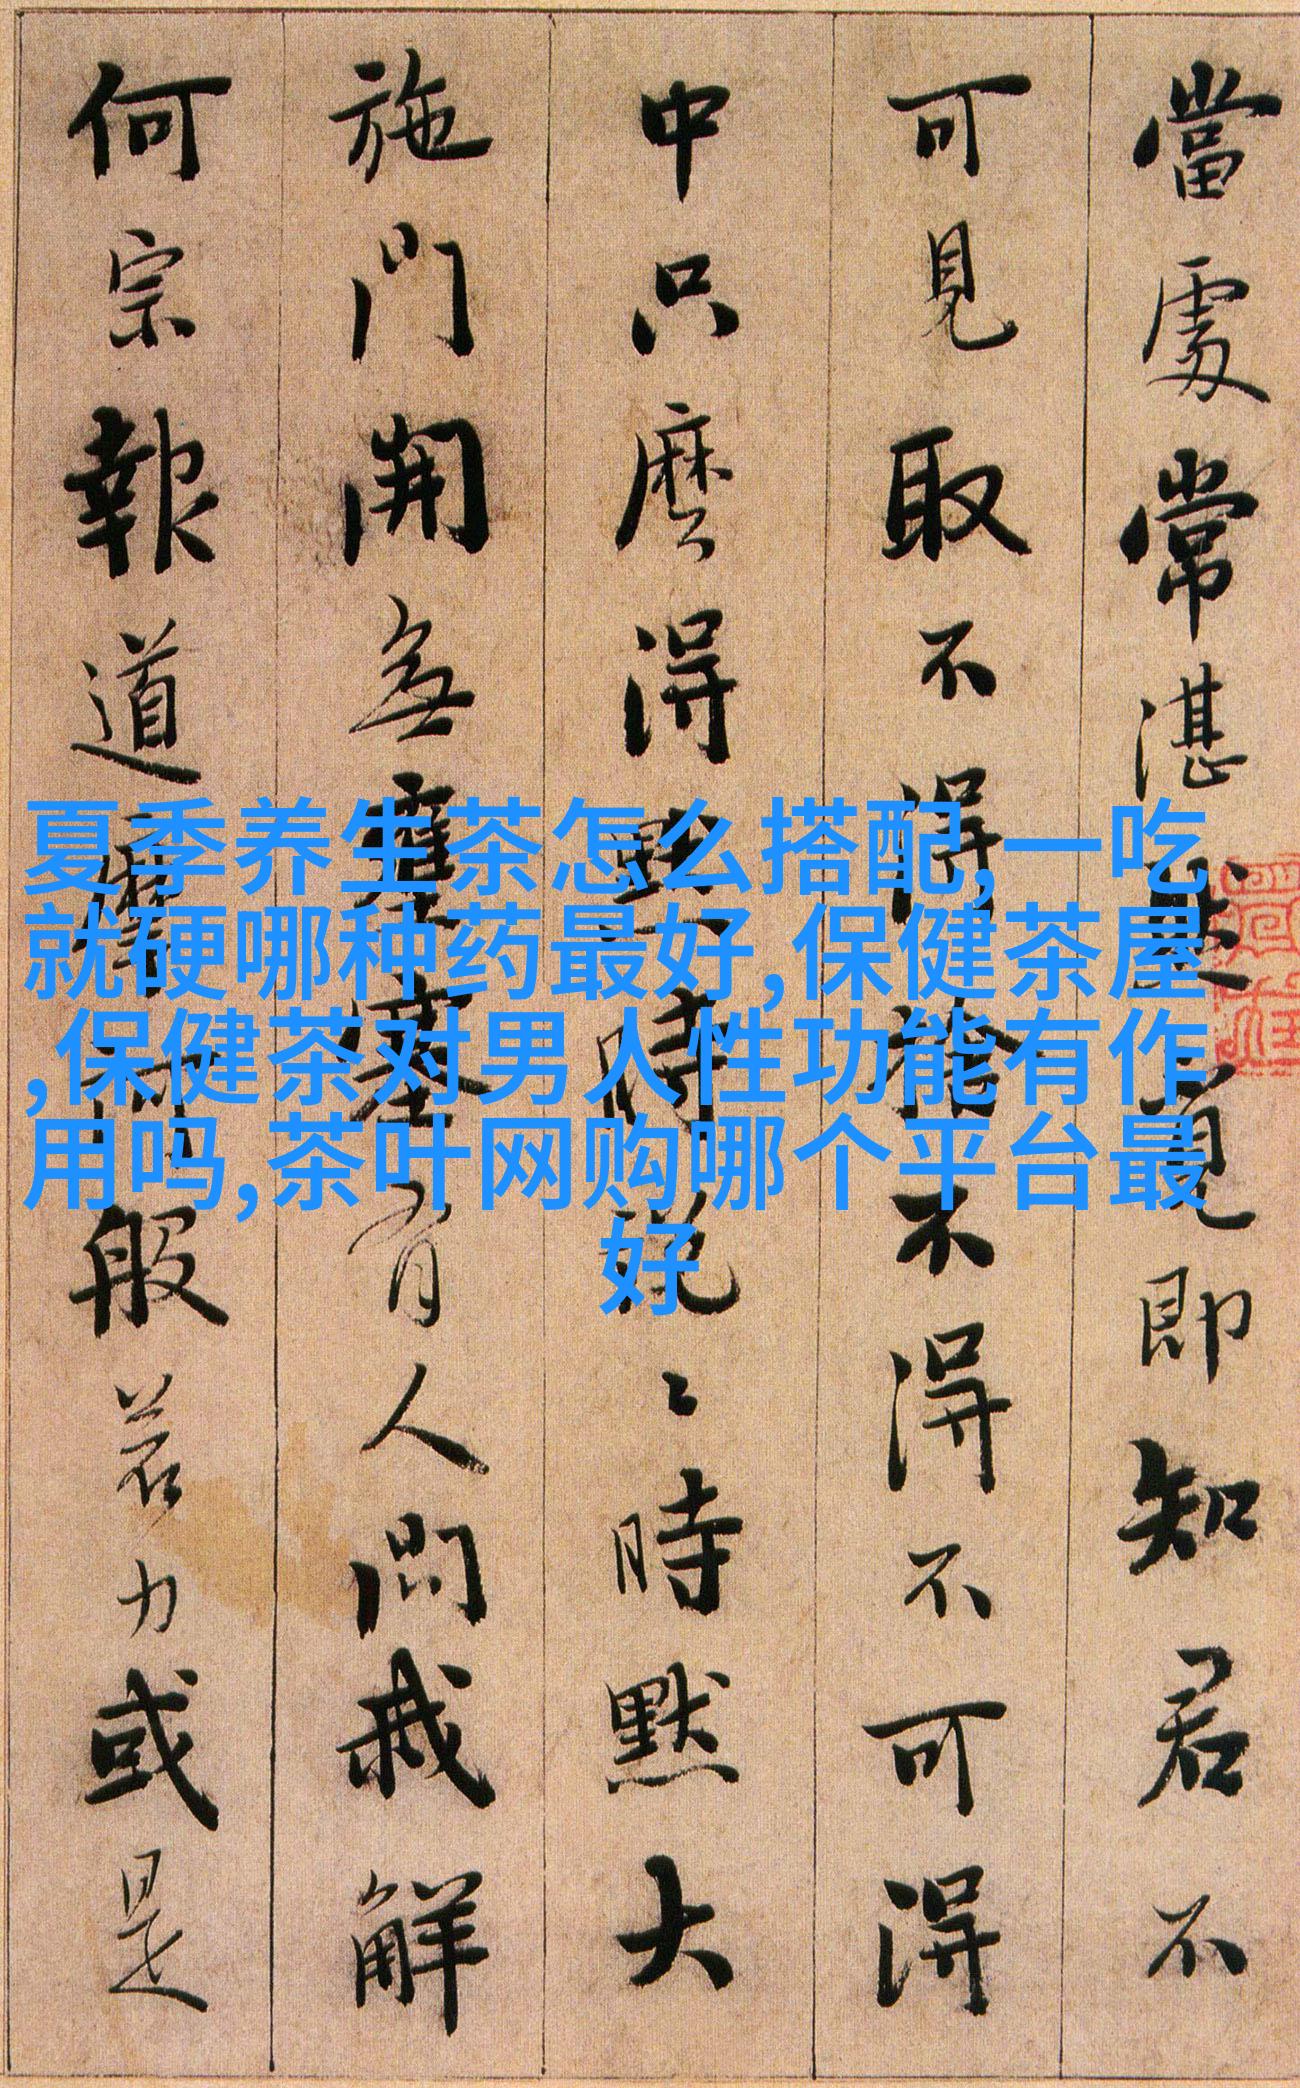 當處常湛然覓即知君不
可見取不得捨不得不可得
中只麼得默時説〻時默大
施門開無壅塞有人問我解
何宗報道摩訶般若力或是
夏季养生茶怎么搭配,一吃
就硬哪种药最好,保健茶屋
,保健茶对男人性功能有作
用吗,茶叶网购哪个平台最
好